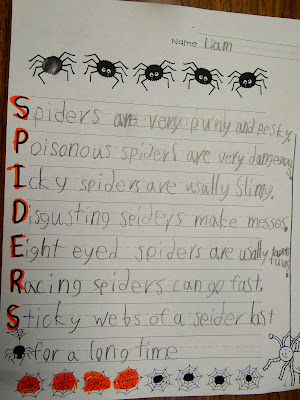 Name Liam
Spiders are very  and pesky.
Poisonous spiders are very dangerous
Icky spiders are usally slimy.
Disgusting seiders make messes.
Eight eyed spiders are usally
Racing spiders can go fast.
Sticky webs of a seider last
for a long time